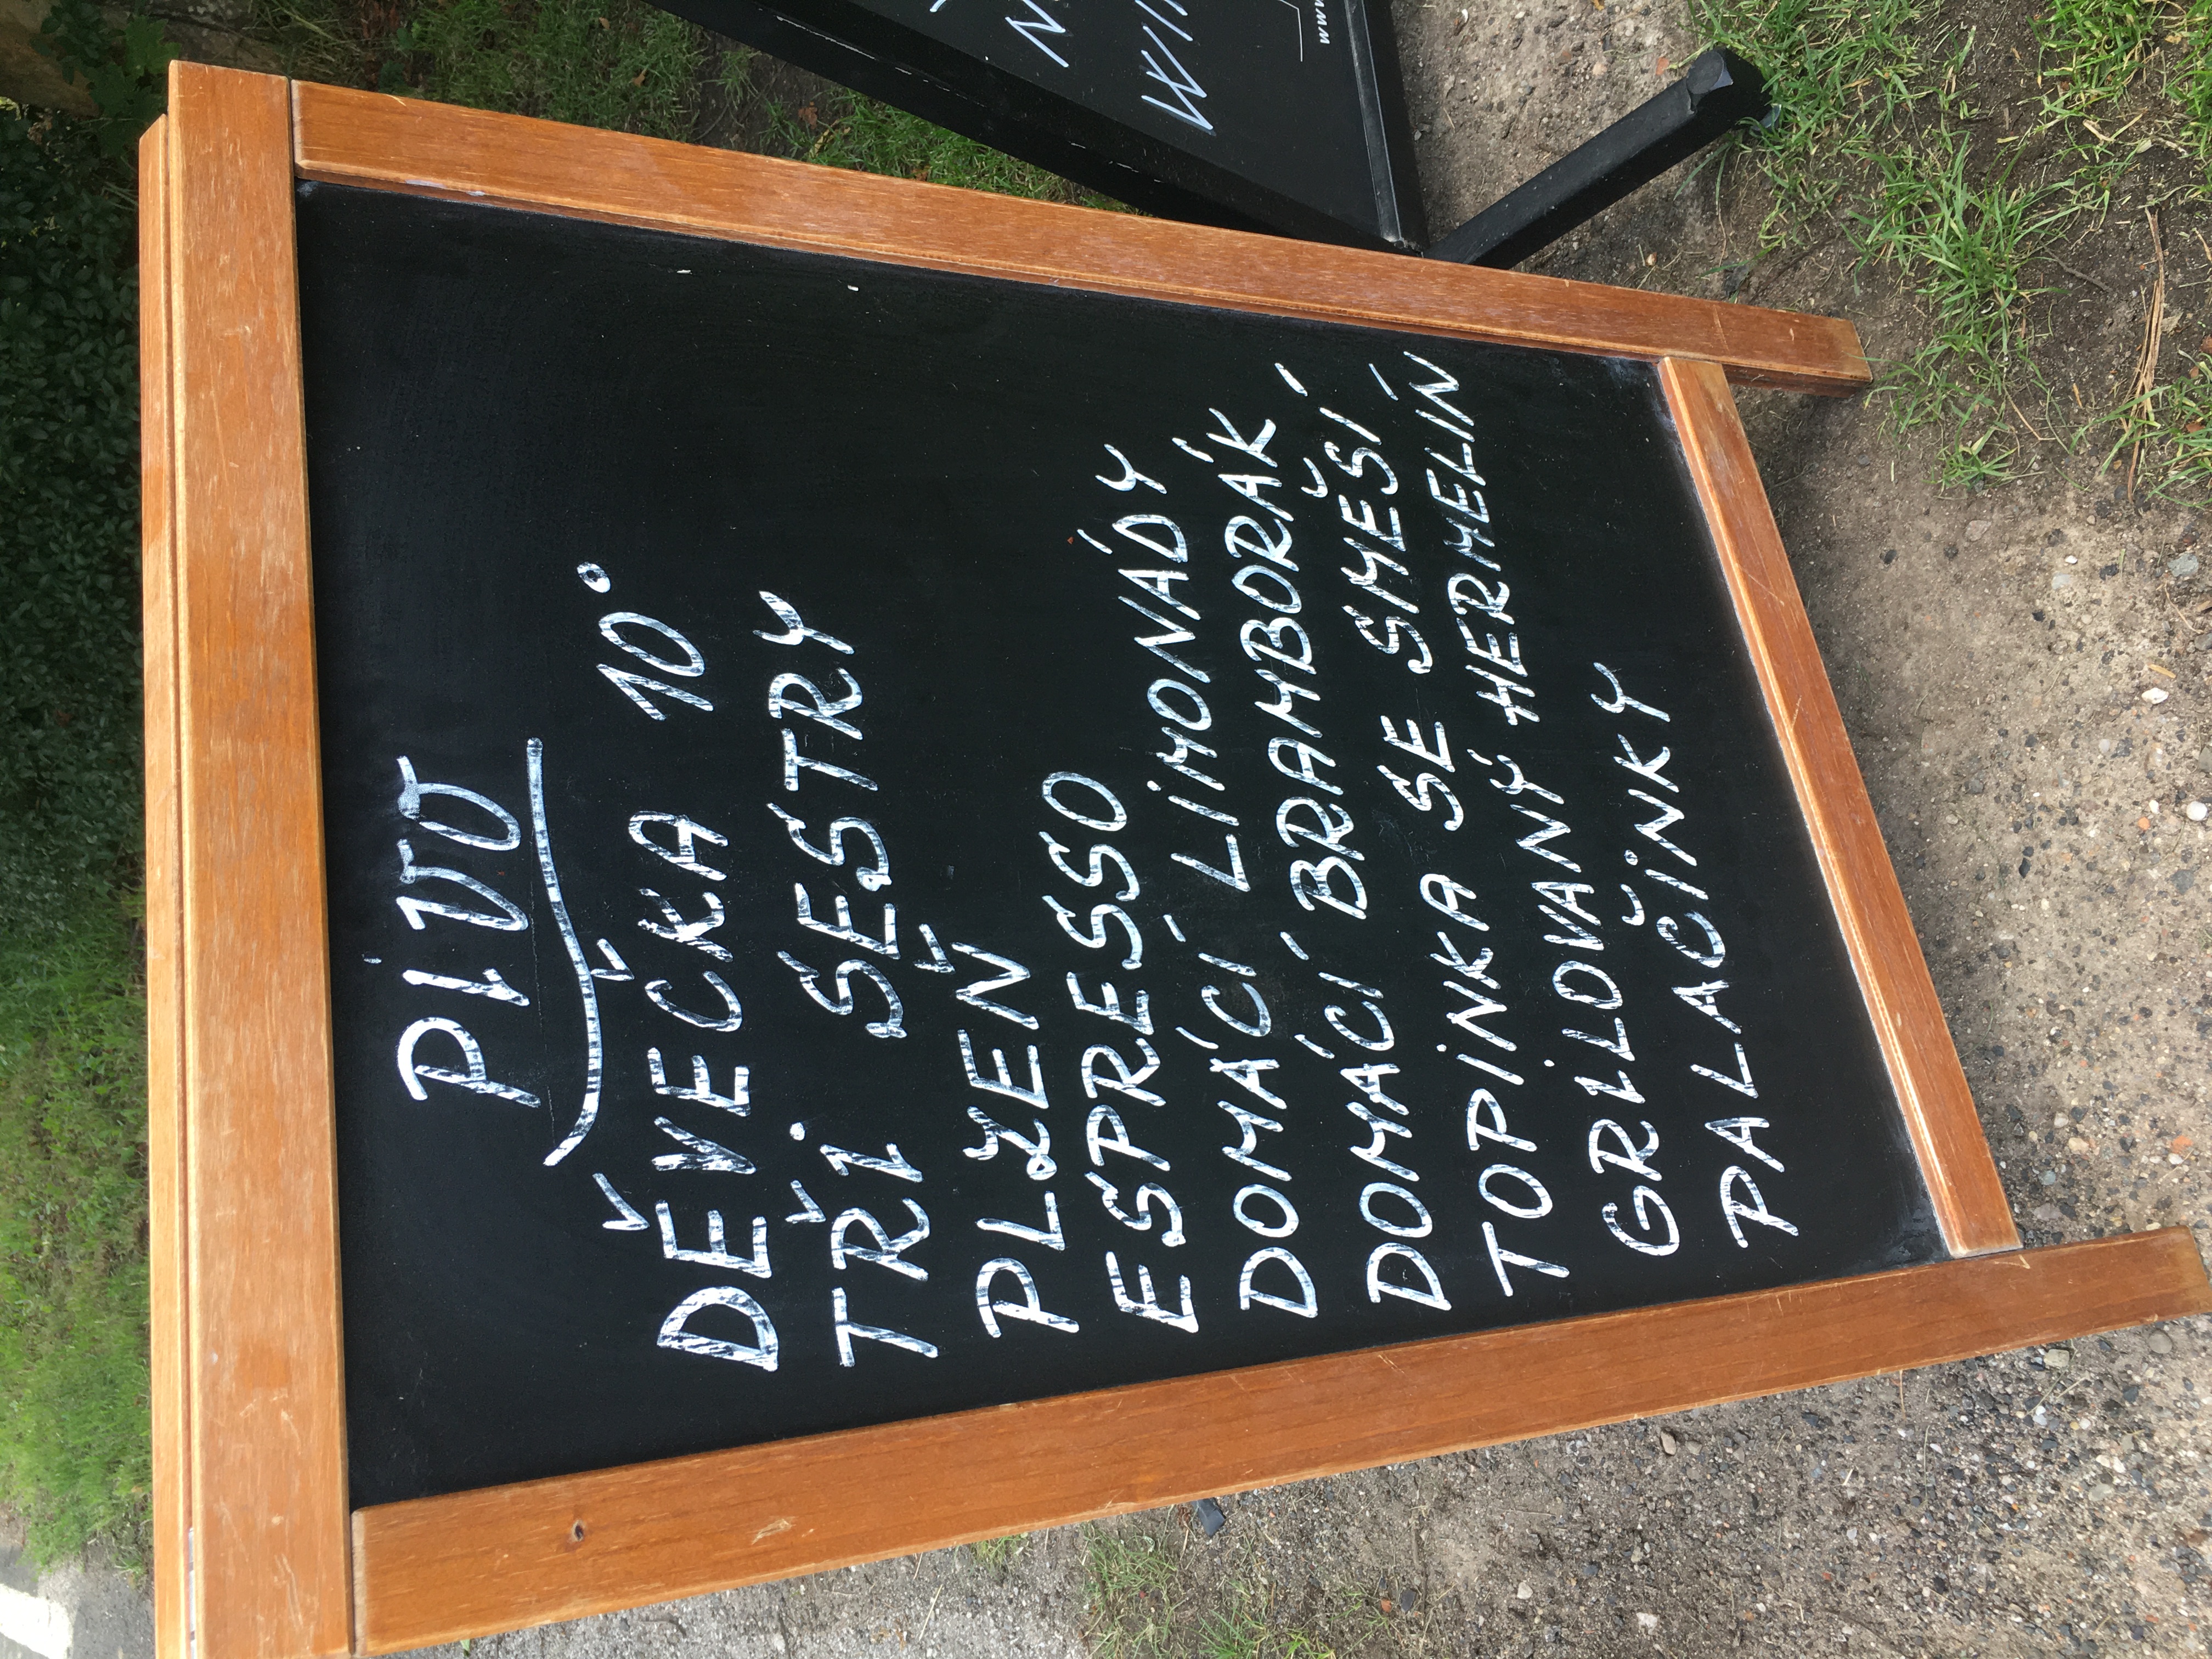 PIVO
DĚVEČKA 10°
TŘI SESTRY
PLZEŇ
ESPRESSO
DOMÁCÍ LIMONÁDY
DOMÁCÍ BRAMBORÁK
TOPINKA SE SMĚSÍ
GRILOVANÝ HERMELÍN
PALAČINKY
www